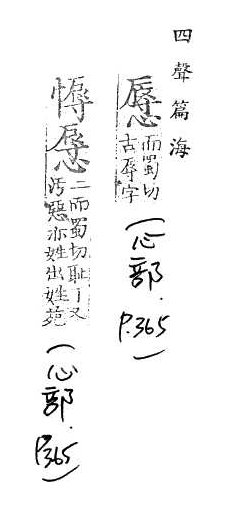 四聲篇海
而蜀切
古辱字
(心部.
P.365)
二而蜀切耻丁又
汚惡亦姓出姓苑
(心部.
P365)